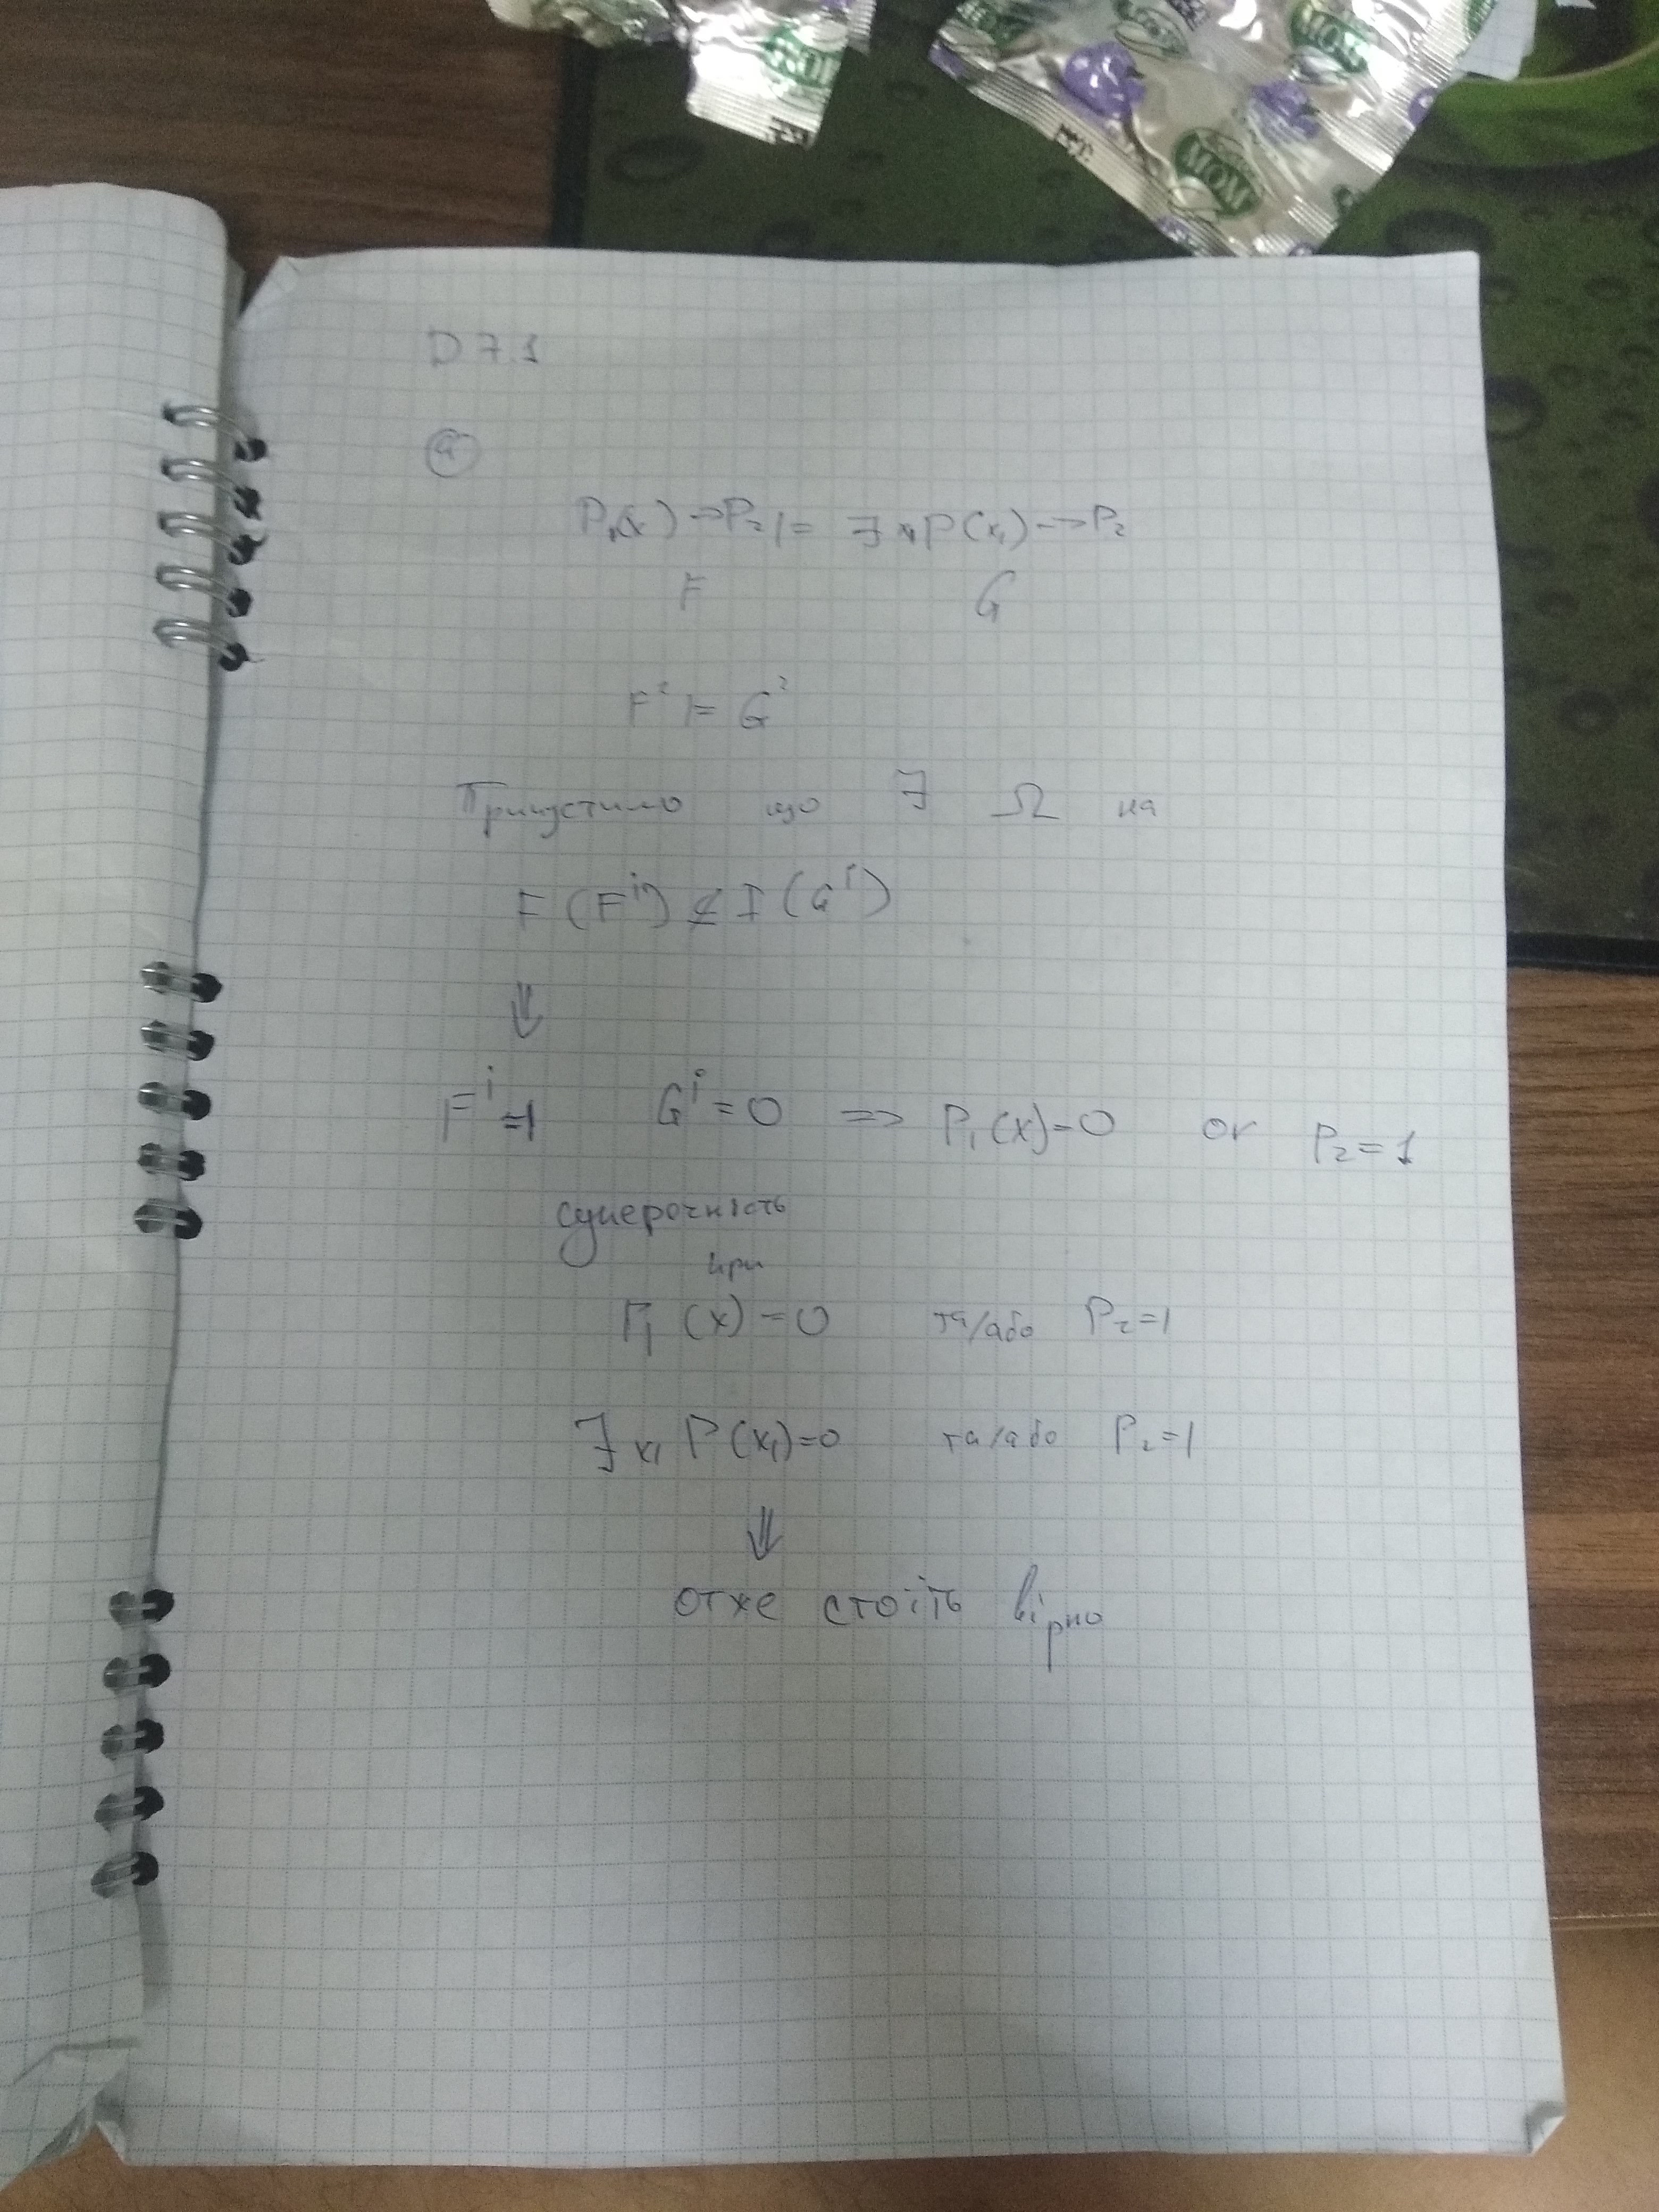 МОМ
D 7.1
а
P₁(x) -> P₂ |= ∃x₁P(x₁) -> P₂
F G
F² |= G²
Припустимо що ∃ Ω на
F (Fⁱ) ≰ I (Gⁱ)
⇓
Fⁱ=1 Gⁱ=0 => P₁(x)=0 or P₂=1
суперечність
при
P₁ (x) =0 та/або P₂=1
∃x₁ P(x₁)=0 та/або P₂=1
⇓
отже стоїть вірно